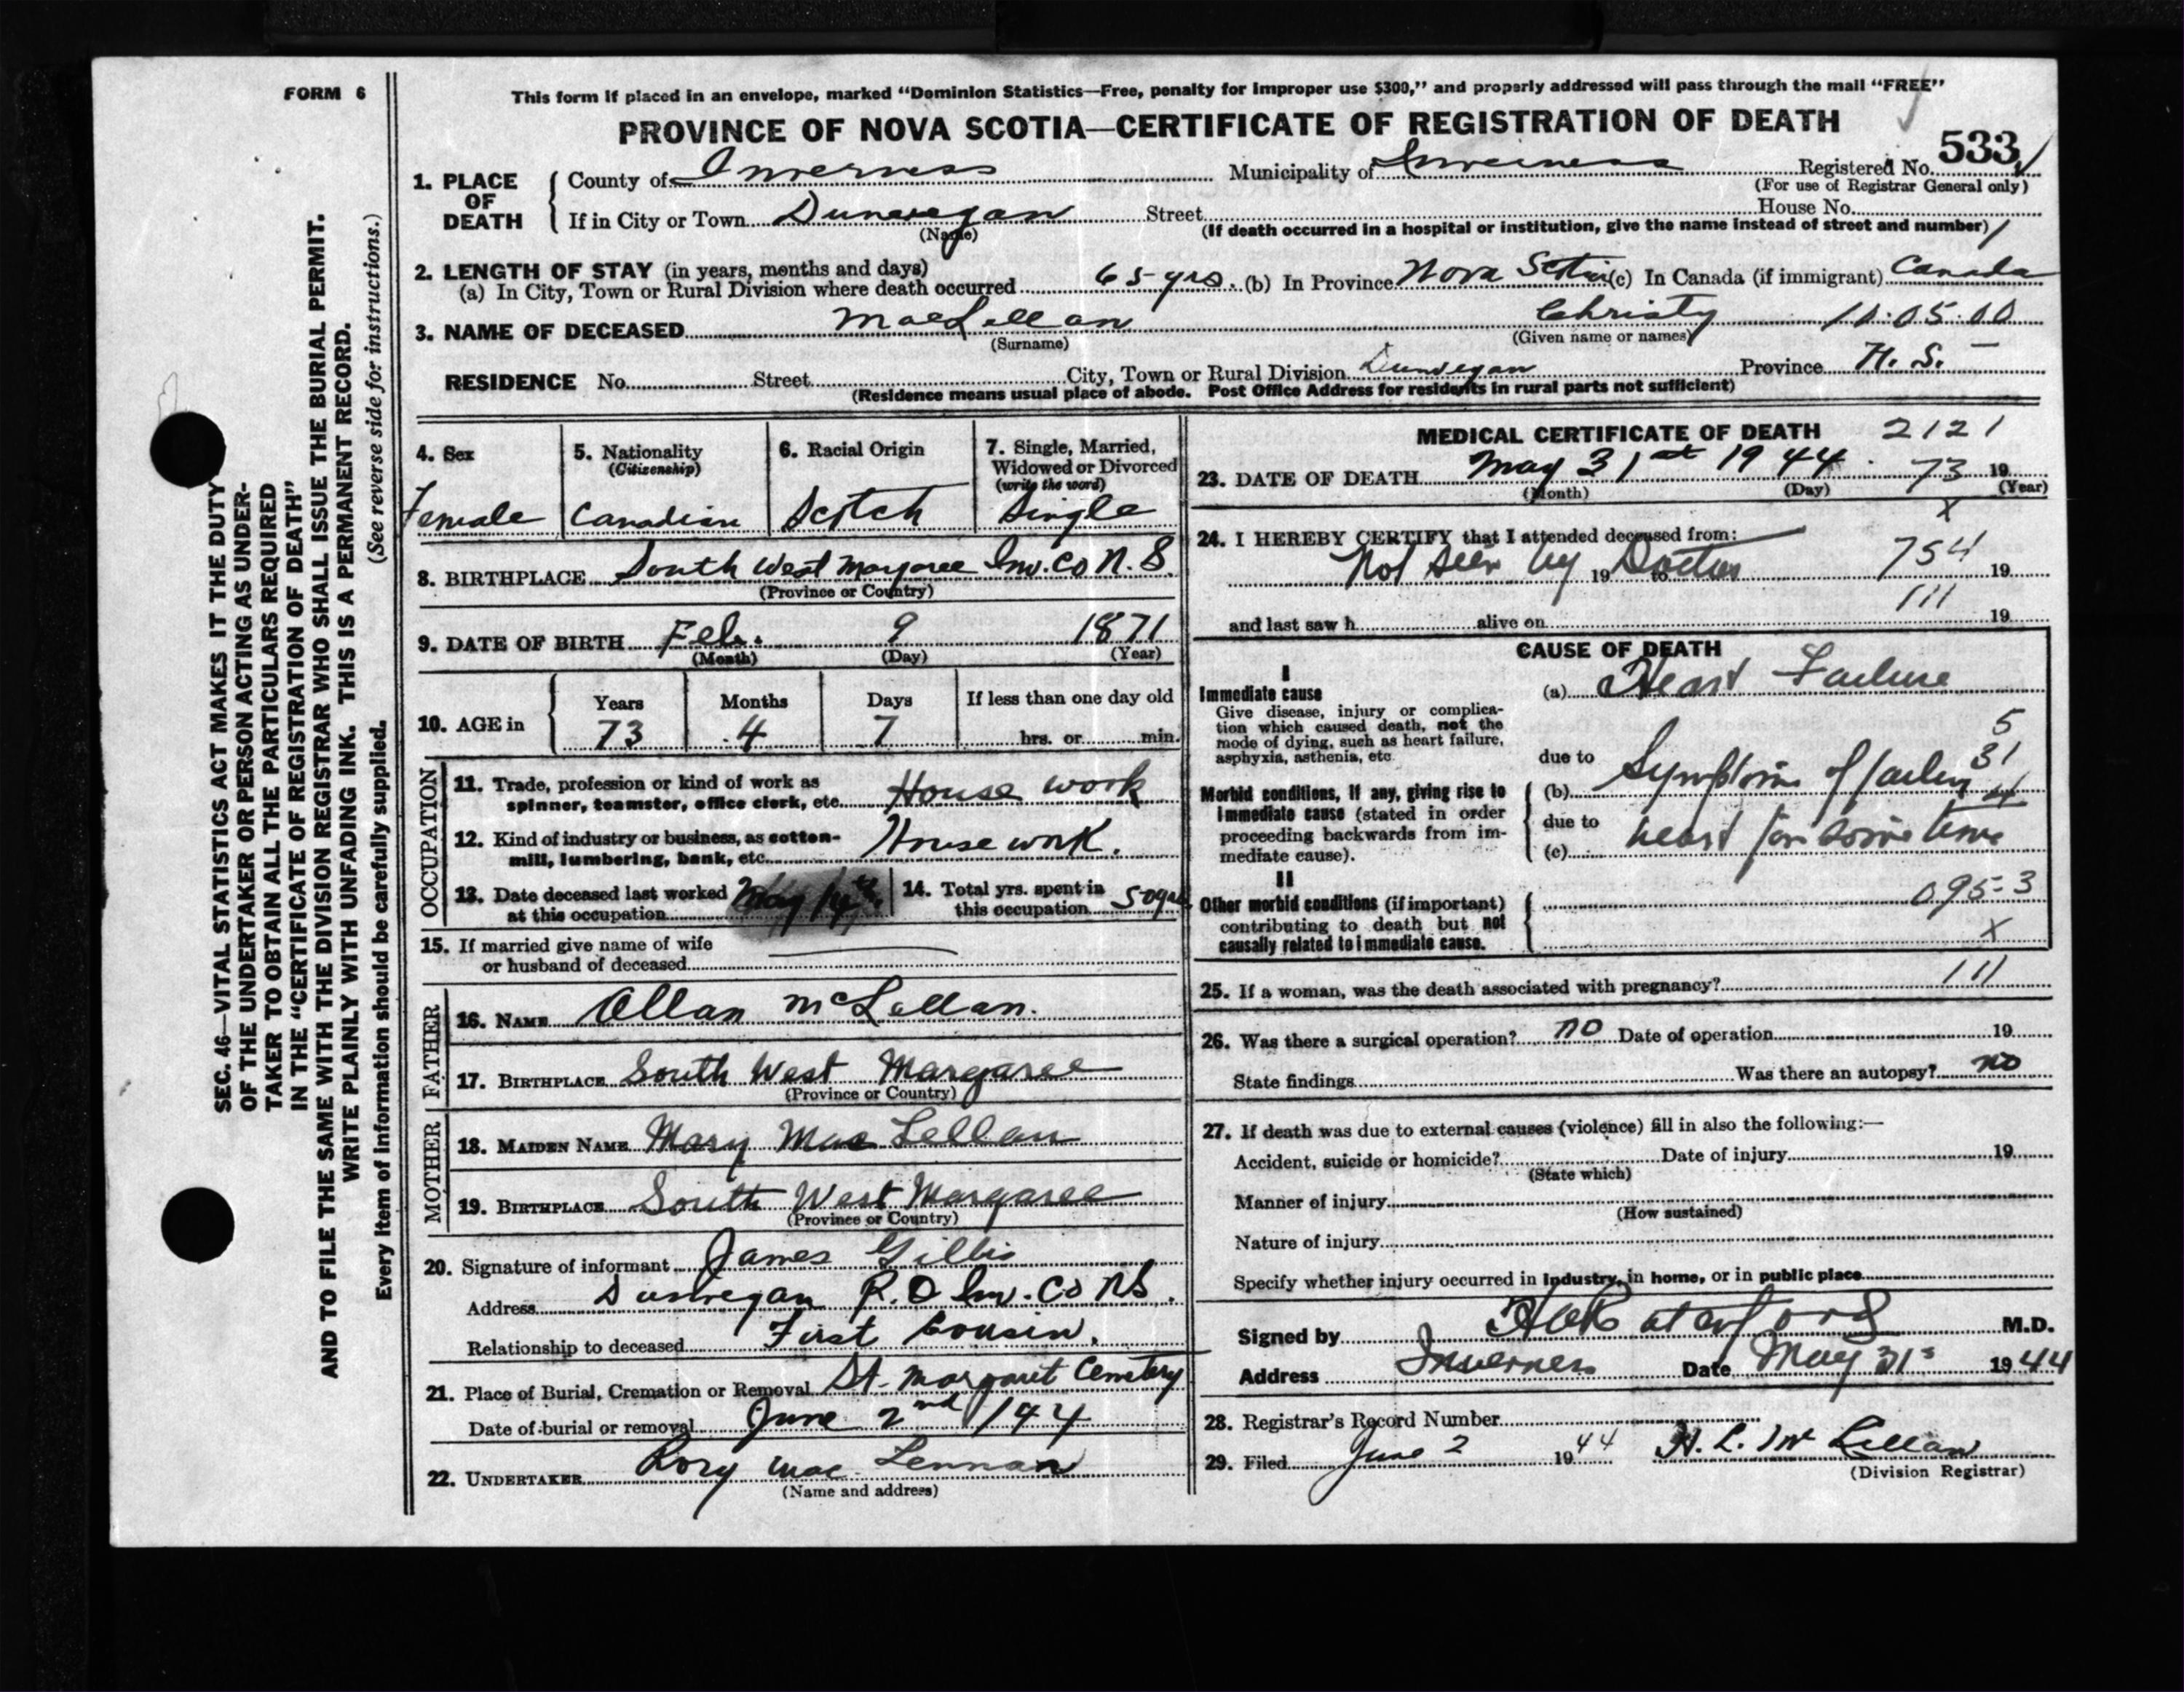 FORM 6
This form if placed in an envelope, marked “Dominion Statistics—Free, penalty for improper use $300,” and properly addressed will pass through the mail “FREE”
PROVINCE OF NOVA SCOTIA—CERTIFICATE OF REGISTRATION OF DEATH
1. PLACE OF DEATH
County of Inverness Municipality of Inverness Registered No. 533
(For use of Registrar General only)
If in City or Town Dunvegan Street House No.
(Name) (If death occurred in a hospital or institution, give the name instead of street and number)
2. LENGTH OF STAY (in years, months and days)
(a) In City, Town or Rural Division where death occurred 65 yrs. (b) In Province Nova Scotia (c) In Canada (if immigrant) Canada
3. NAME OF DECEASED MacLellan Christy 10.05.00
(Surname) (Given name or names)
RESIDENCE No. Street City, Town or Rural Division Dunvegan Province N.S.
(Residence means usual place of abode. Post Office Address for residents in rural parts not sufficient)
SEC. 46—VITAL STATISTICS ACT MAKES IT THE DUTY
OF THE UNDERTAKER OR PERSON ACTING AS UNDER-
TAKER TO OBTAIN ALL THE PARTICULARS REQUIRED
IN THE “CERTIFICATE OF REGISTRATION OF DEATH”
AND TO FILE THE SAME WITH THE DIVISION REGISTRAR WHO SHALL ISSUE THE BURIAL PERMIT.
WRITE PLAINLY WITH UNFADING INK. THIS IS A PERMANENT RECORD.
(See reverse side for instructions.)
Every item of information should be carefully supplied.
4. Sex
Female
5. Nationality
(Citizenship)
Canadian
6. Racial Origin
Scotch
7. Single, Married,
Widowed or Divorced
(write the word)
Single
8. BIRTHPLACE South West Margaree Inv. Co N.S.
(Province or Country)
9. DATE OF BIRTH Feb. 9 1871
(Month) (Day) (Year)
10. AGE in
Years Months Days If less than one day old
73 4 7 hrs. or min.
OCCUPATION
11. Trade, profession or kind of work as
spinner, teamster, office clerk, etc. House work
12. Kind of industry or business, as cotton-
mill, lumbering, bank, etc. House work.
13. Date deceased last worked
at this occupation May
14. Total yrs. spent in
this occupation 50 yrs
15. If married give name of wife
or husband of deceased
FATHER
16. NAME Allan McLellan.
17. BIRTHPLACE South West Margaree
(Province or Country)
MOTHER
18. MAIDEN NAME Mary MacLellan
19. BIRTHPLACE South West Margaree
(Province or Country)
20. Signature of informant James Gillis
Address Dunvegan P.O Inv. Co NS.
Relationship to deceased First Cousin.
21. Place of Burial, Cremation or Removal St. Margaret Cemetery
Date of burial or removal June 2nd/1944
22. UNDERTAKER Rory MacLennan
(Name and address)
MEDICAL CERTIFICATE OF DEATH 2121
23. DATE OF DEATH May 31st 1944 73 19
(Month) (Day) (Year)
x
24. I HEREBY CERTIFY that I attended deceased from:
Not seen by 19 to Doctor 754 19
111
and last saw h alive on 19
CAUSE OF DEATH
I
Immediate cause
Give disease, injury or complica-
tion which caused death, not the
mode of dying, such as heart failure,
asphyxia, asthenia, etc.
(a) Heart Failure
5
31
due to
Morbid conditions, if any, giving rise to
immediate cause (stated in order
proceeding backwards from im-
mediate cause).
(b) Symptoms of failing
due to
(c) heart for some time
II
Other morbid conditions (if important)
contributing to death but not
causally related to immediate cause.
095-3
x
111
25. If a woman, was the death associated with pregnancy?
26. Was there a surgical operation? no Date of operation 19
State findings Was there an autopsy? no
27. If death was due to external causes (violence) fill in also the following:—
Accident, suicide or homicide? Date of injury 19
(State which)
Manner of injury
(How sustained)
Nature of injury
Specify whether injury occurred in industry, in home, or in public place
Signed by M.D.
Address Inverness Date May 31s 1944
28. Registrar's Record Number
29. Filed June 2 1944 H. L. McLellan
(Division Registrar)